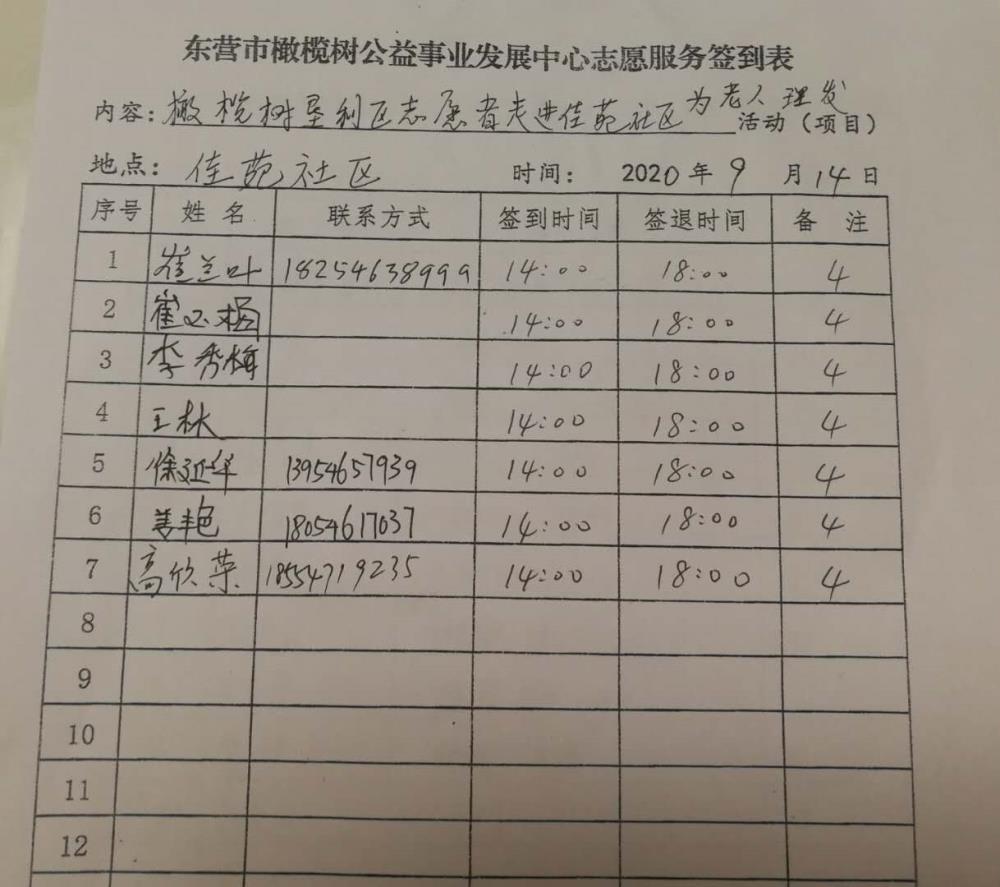 东营市橄榄树公益事业发展中心志愿服务签到表
内容：橄榄树垦利区志愿者走进佳苑社区为老人理发活动（项目）
地点：佳苑社区 时间： 2020年9月14日
序号 姓名 联系方式 签到时间 签退时间 备注
1 崔兰叶 18254638999 14:00 18:00 4
2 崔 14:00 18:00 4
3 李秀梅 14:00 18:00 4
4 王林 14:00 18:00 4
5 徐延华 13954657939 14:00 18:00 4
6 18054617037 14:00 18:00 4
7 高欣荣 18554719235 14:00 18:00 4
8
9
10
11
12